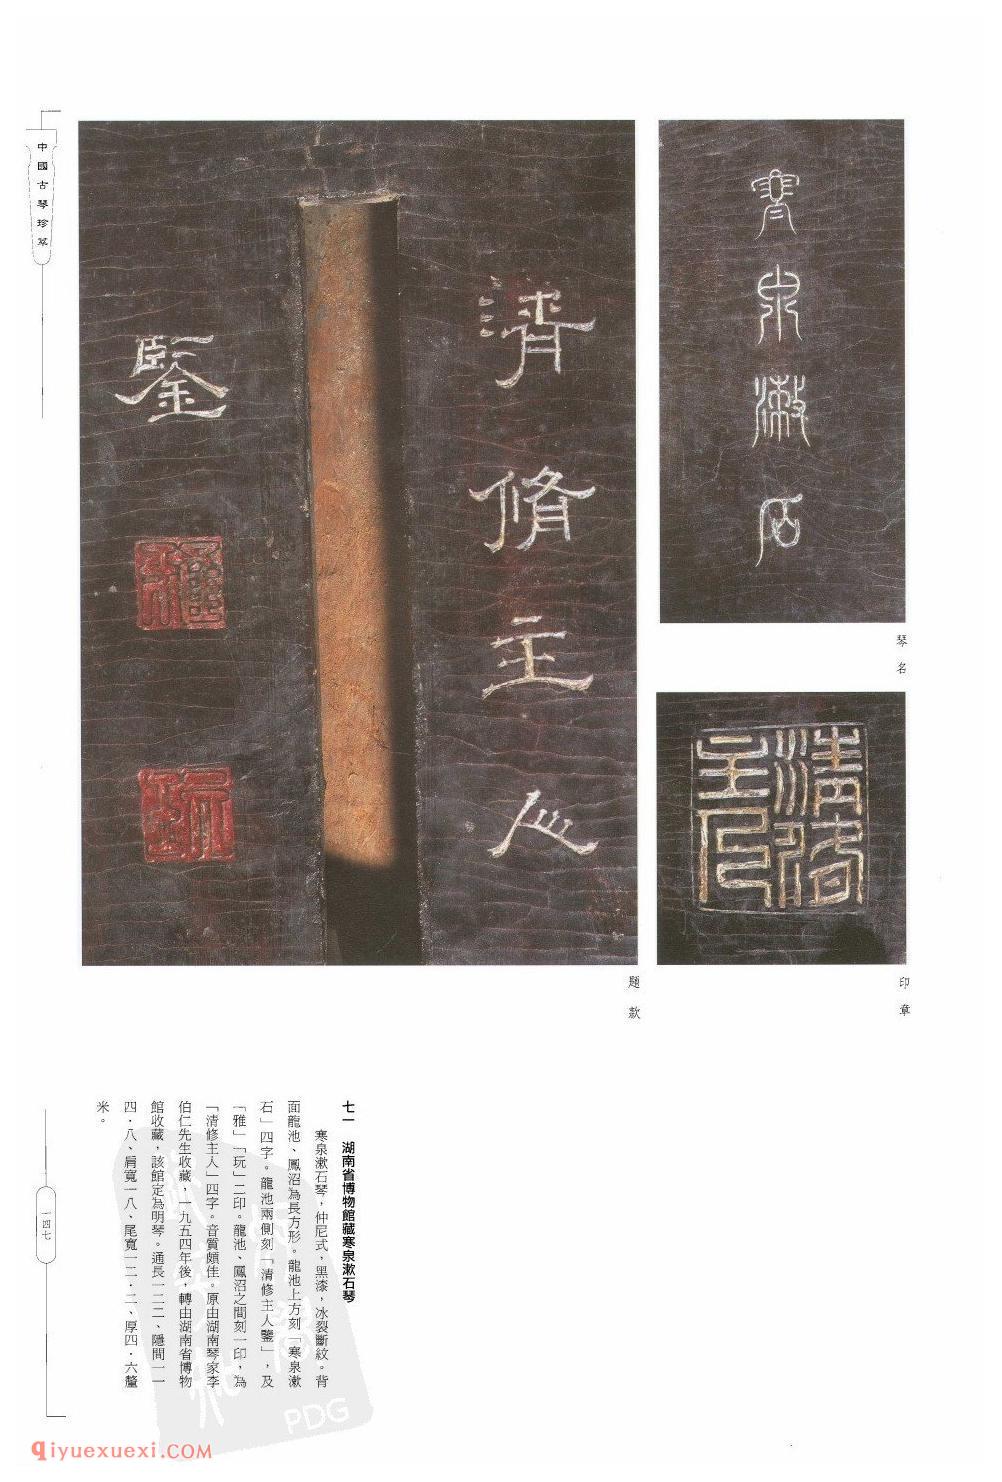 中國古琴珍萃
寒泉漱石
琴名
清脩主人
鑒
題款
清修
主人
印章
七一 湖南省博物館藏寒泉漱石琴
寒泉漱石琴，仲尼式，黑漆，冰裂斷紋。背
面龍池、鳳沼為長方形。龍池上方刻「寒泉漱
石」四字。龍池兩側刻「清修主人鑒」，及
「雅」「玩」二印。龍池、鳳沼之間刻一印，為
「清修主人」四字。音質頗佳。原由湖南琴家李
伯仁先生收藏，一九五四年後，轉由湖南省博物
館收藏，該館定為明琴。通長一二二、隱間一一
四·八、肩寬一八、尾寬一二·二、厚四·六釐
米。
一四七
PDG
qiyuexuexi.com